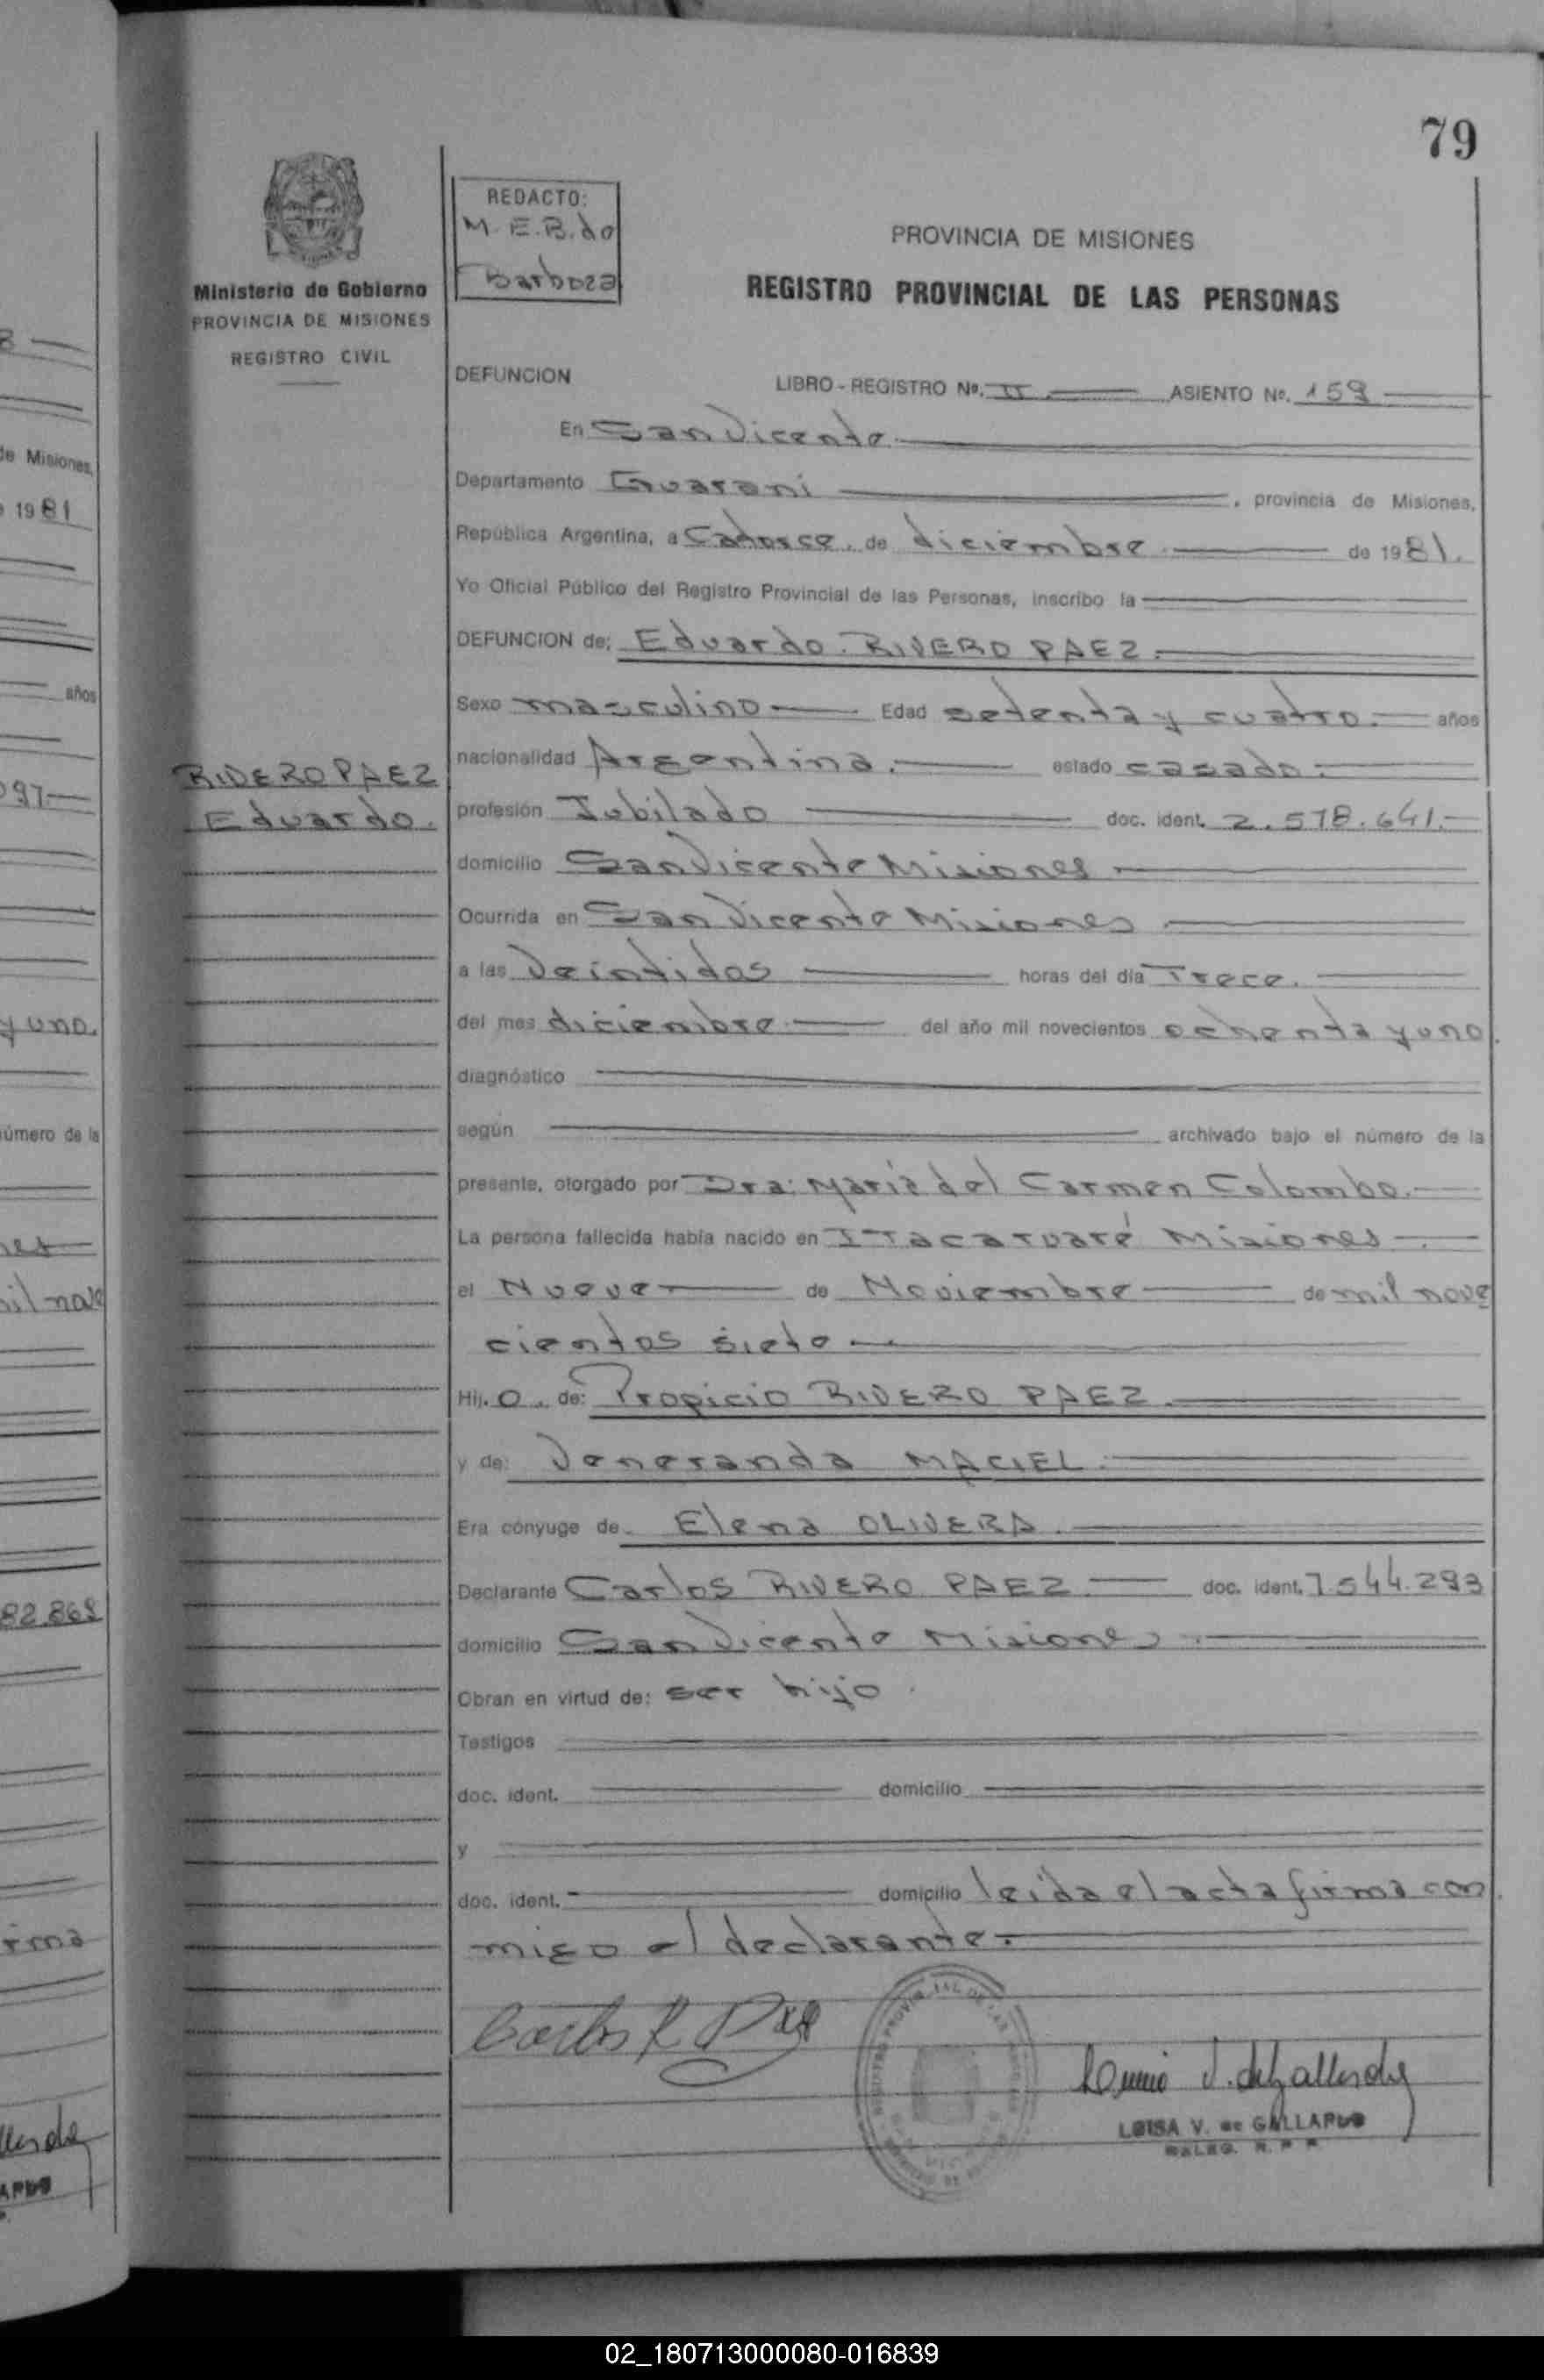 79
REDACTO:
M.E.B. do
Barboza
PROVINCIA DE MISIONES
REGISTRO PROVINCIAL DE LAS PERSONAS
Ministerio de Gobierno
PROVINCIA DE MISIONES
REGISTRO CIVIL
DEFUNCION LIBRO - REGISTRO Nº. II ASIENTO Nº. 159
En San Vicente.
Departamento Guarani , provincia de Misiones,
República Argentina, a Catorce. de diciembre de 1981.
Yo Oficial Público del Registro Provincial de las Personas, inscribo la
DEFUNCION de: Eduardo. RIVERO PAEZ.
Sexo masculino Edad setenta y cuatro. años
nacionalidad Argentina. estado casado.
RIVERO PAEZ
Eduardo.
profesión Jubilado doc. ident. 2.578.641.
domicilio San Vicente Misiones
Ocurrida en San Vicente Misiones
a las Veintidos horas del día Trece.
del mes diciembre del año mil novecientos ochenta y uno.
diagnóstico
según archivado bajo el número de la
presente, otorgado por Dra: Maria del Carmen Colombo.
La persona fallecida había nacido en Itacaruaré Misiones
el Nueve de Noviembre de mil nove
cientos siete
Hij. o. de: Propicio RIVERO PAEZ.
y de: Veneranda MACIEL.
Era cónyuge de. Elena OLIVERA.
Declarante Carlos RIVERO PAEZ. doc. ident. 7.544.293
domicilio San Vicente Misiones.
Obran en virtud de: ser hijo.
Testigos
doc. ident. domicilio
y
doc. ident. domicilio leida el acta firma con
migo el declarante.
Carlos R Paez
LUISA V. de GALLARDO
02_180713000080-016839
de Misiones,
1981
años
y uno.
número de la
mil nove
82.869